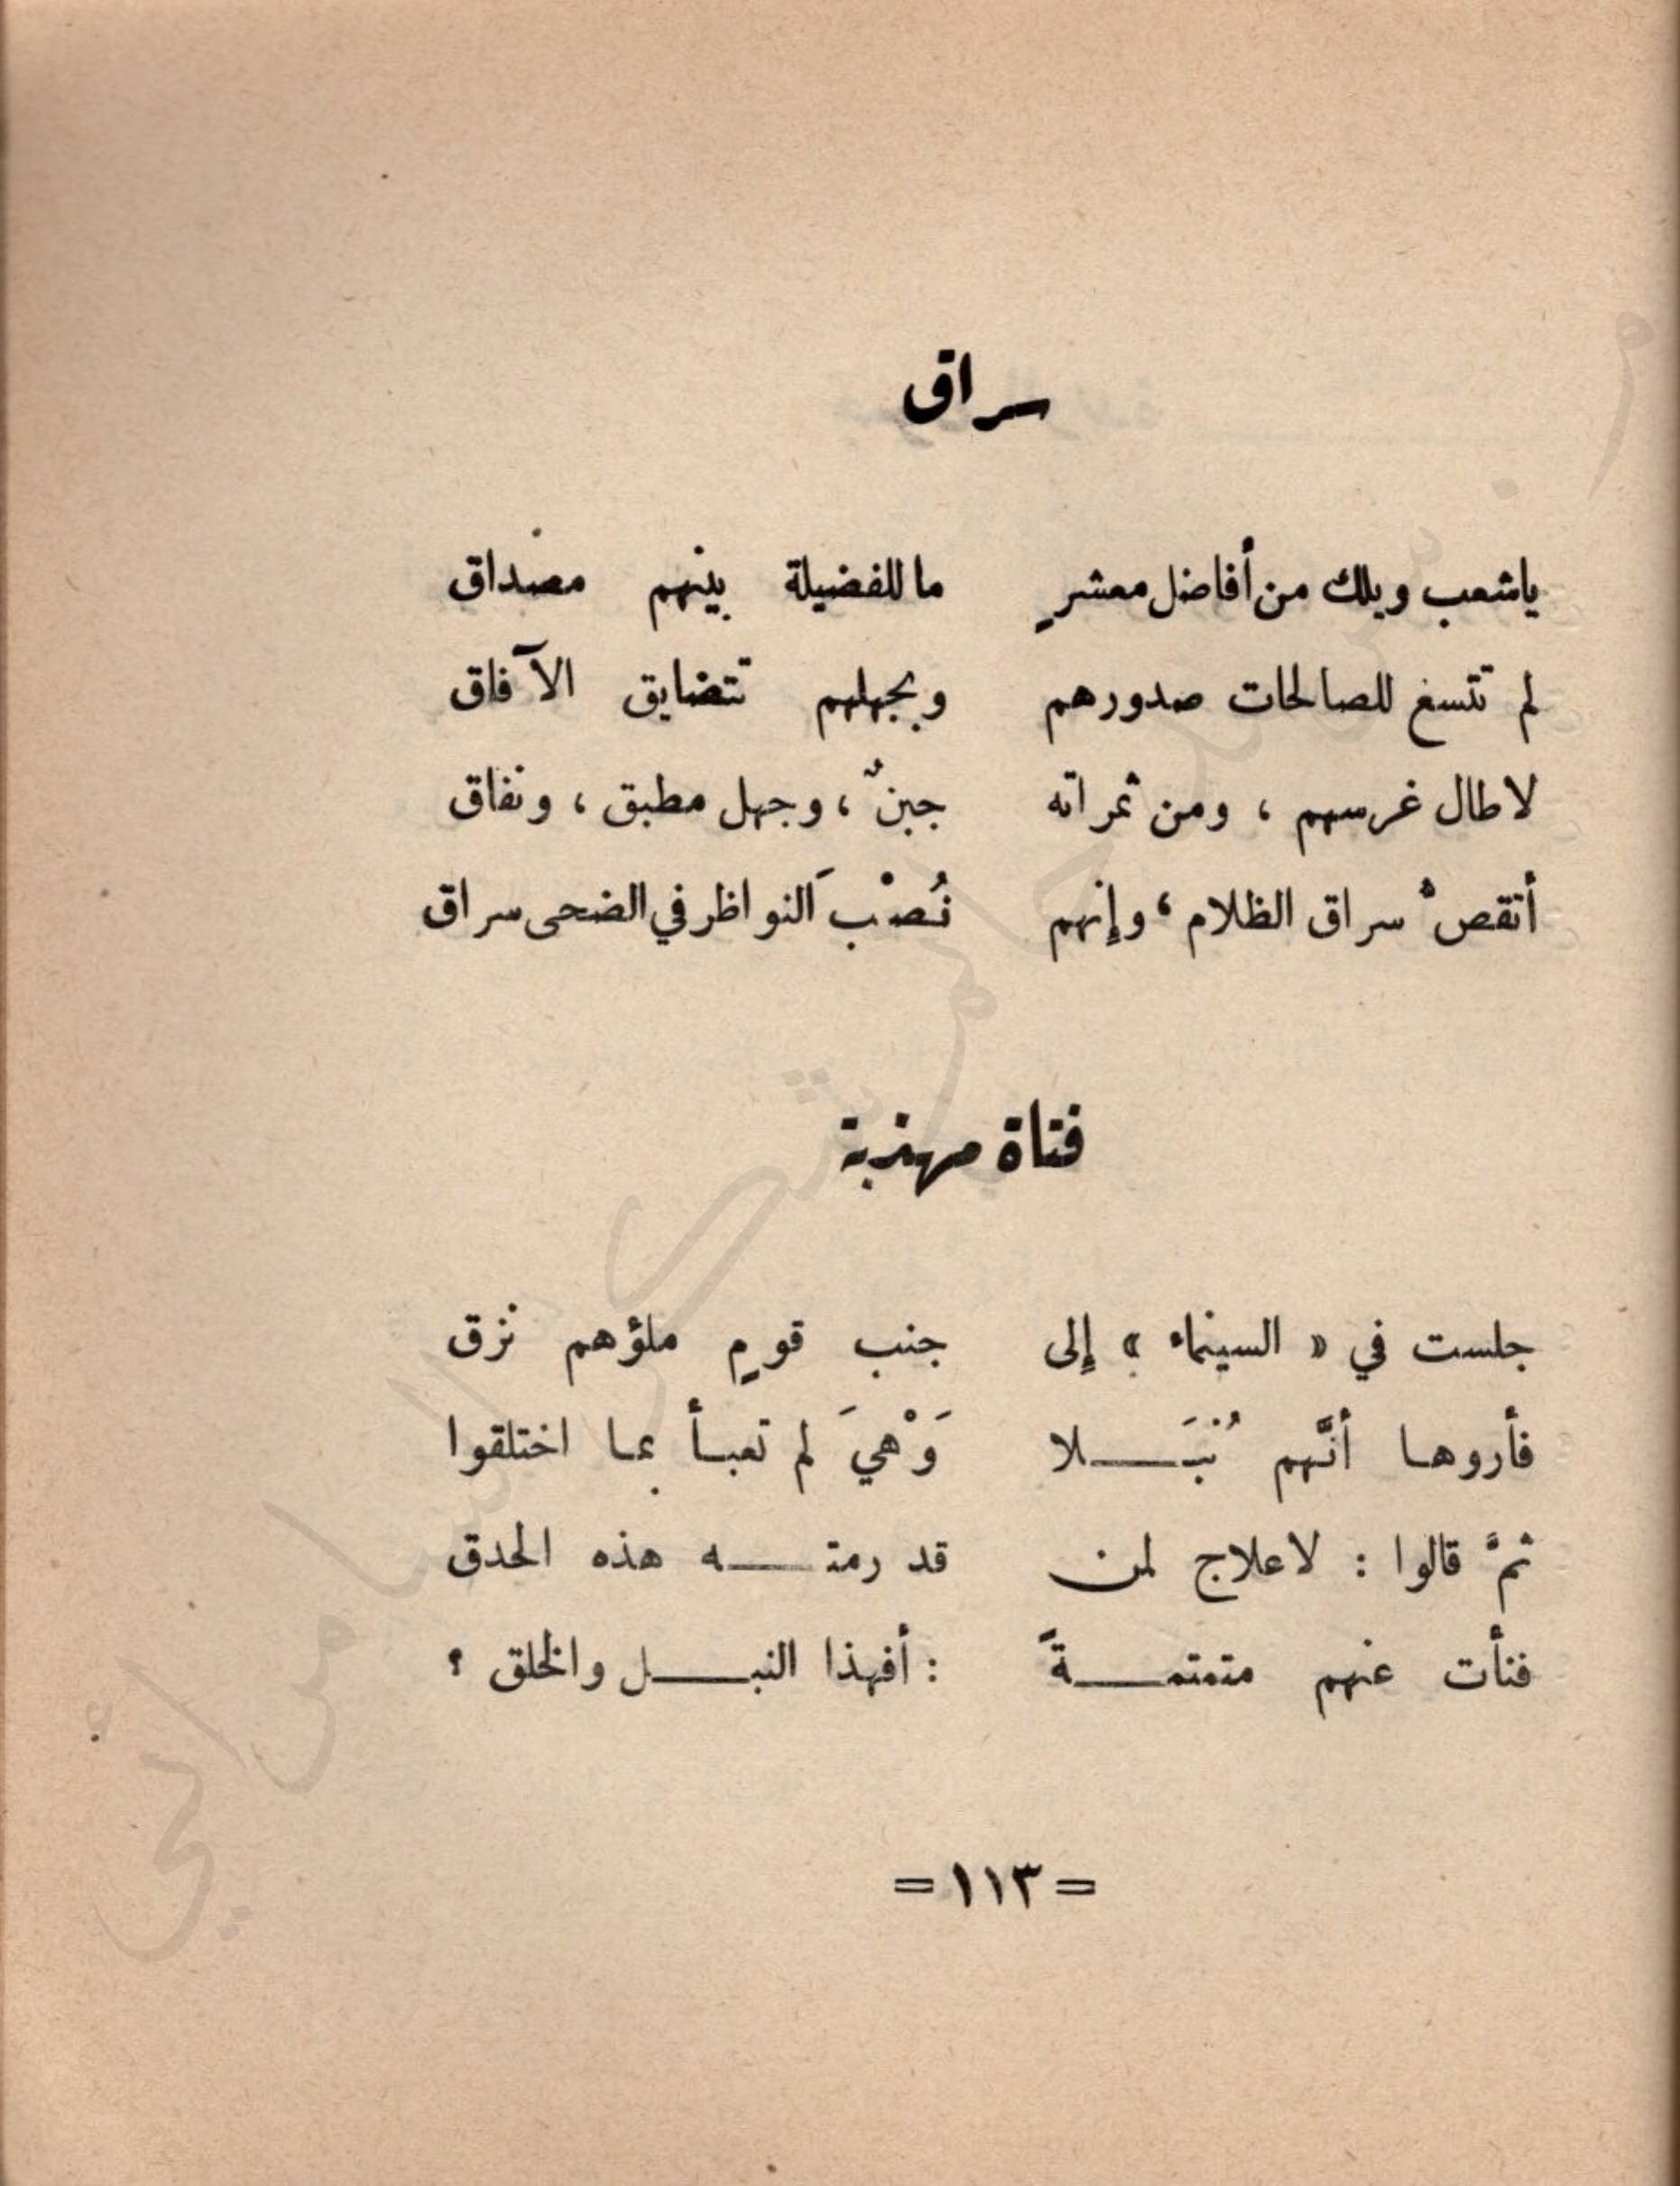 سراق
ياشعب ويلك من أفاضل معشرٍ ما للفضيلة بينهم مصداق
لم تتسغ للصالحات صدورهم وبجهلهم تتضايق الآفاق
لاطال غرسهم ، ومن ثمراته جبنٌ ، وجهل مطبق ، ونفاق
أتقص سراق الظلام ، وإنهم نُصْبَ النواظر في الضحى سراق
فتاة مهذبة
جلست في « السينماء » إلى جنب قومٍ ملؤهم نزق
فأروها أنَّهم نُبَلا وَهْيَ لم تعبأ بما اختلقوا
ثمَّ قالوا : لاعلاج لمن قد رمته هذه الحدق
فنأت عنهم متمتمةً : أفهذا النبل والخلق ؟
= ١١٣ =